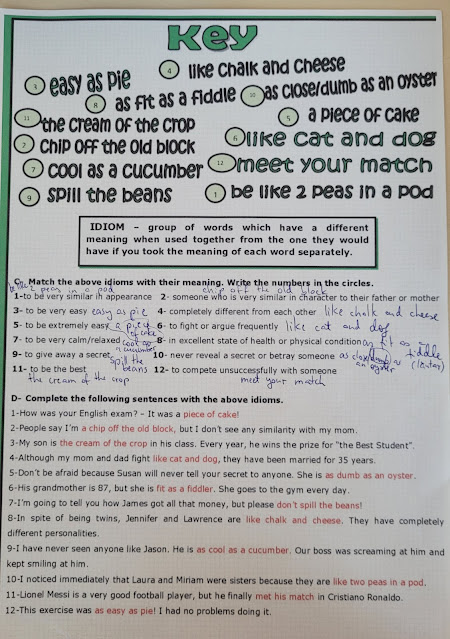 Key
3 easy as pie
4 like chalk and cheese
8 as fit as a fiddle
10 as close/dumb as an oyster
11 the cream of the crop
5 a piece of cake
2 chip off the old block
6 like cat and dog
7 cool as a cucumber
12 meet your match
9 spill the beans
1 be like 2 peas in a pod
IDIOM – group of words which have a different
meaning when used together from the one they would
have if you took the meaning of each word separately.
C- Match the above idioms with their meaning. Write the numbers in the circles.
be like 2 peas in a pod chip off the old block
1-to be very similar in appearance 2- someone who is very similar in character to their father or mother
3- to be very easy easy as pie 4- completely different from each other like chalk and cheese
5- to be extremely easy a piece of cake 6- to fight or argue frequently like cat and dog
7- to be very calm/relaxed cool as a cucumber 8- in excellent state of health or physical condition as fit as a fiddle
9- to give away a secret spill the beans 10- never reveal a secret or betray someone as close/dumb as an oyster
11- to be the best 12- to compete unsuccessfully with someone
the cream of the crop meet your match
D- Complete the following sentences with the above idioms.
1-How was your English exam? – It was a piece of cake!
2-People say I'm a chip off the old block, but I don't see any similarity with my mom.
3-My son is the cream of the crop in his class. Every year, he wins the prize for "the Best Student".
4-Although my mom and dad fight like cat and dog, they have been married for 35 years.
5-Don't be afraid because Susan will never tell your secret to anyone. She is as dumb as an oyster.
6-His grandmother is 87, but she is fit as a fiddler. She goes to the gym every day.
7-I'm going to tell you how James got all that money, but please don't spill the beans!
8-In spite of being twins, Jennifer and Lawrence are like chalk and cheese. They have completely
different personalities.
9-I have never seen anyone like Jason. He is as cool as a cucumber. Our boss was screaming at him and
kept smiling at him.
10-I noticed immediately that Laura and Miriam were sisters because they are like two peas in a pod.
11-Lionel Messi is a very good football player, but he finally met his match in Cristiano Ronaldo.
12-This exercise was as easy as pie! I had no problems doing it.